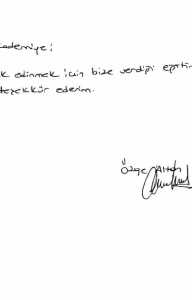 ademiye;
k edinmek için bize verdiği eğitim
teşekkür ederim.
Özge Altan